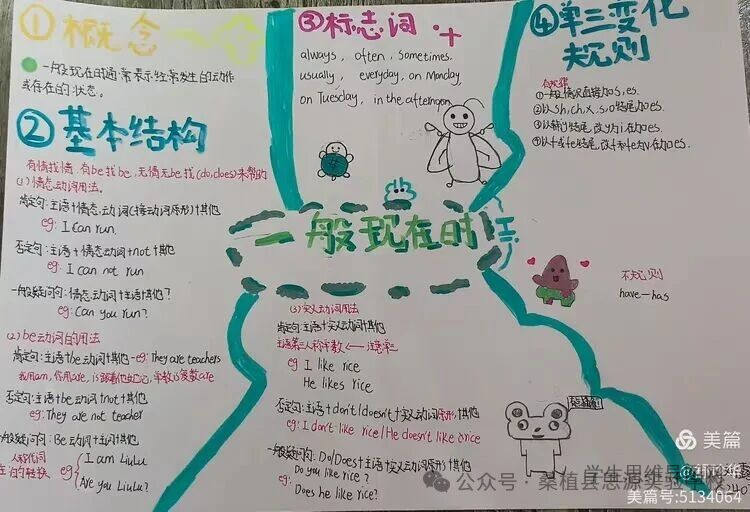 ① 概念
一般现在时通常表示经常发生的动作
或存在的状态。
② 基本结构
有情找情,有be找be,无情无be找(do,does)来帮的
(1)情态动词用法。
肯定句:主语+情态动词(接动词原形)+其他
eg: I can run.
否定句:主语+情态动词+not+其他
eg: I can not run
一般疑问句:情态动词+主语+其他?
eg: Can you run?
(2)be动词的用法
肯定句:主语+be动词+其他 eg: They are teachers
我用am,你用are,is跟着他她它,单数is复数are
否定句:主语+be动词+not+其他
eg: They are not teacher
一般疑问句:Be动词+主+其他
人称代词
eg
I am LiuLu
Are you LiuLu?
③ 标志词
always, often, sometimes.
usually, everyday, on Monday,
on Tuesday, in the afternoon.
④ 单三变化
规则
①一般情况直接加s,es.
②以sh,ch,x,s,o结尾加es.
③以辅y结尾,改y为i在加es.
④以f或fe结尾,改f和fe为v在加es.
一般现在时
不规则
have—has
(3)实义动词用法
肯定句:主语+实义动词+其他
主语第三人称单数
eg I like rice
He likes rice.
否定句:主语+don't/doesn't+实义动词原形+其他
eg: I don't like rice/He doesn't like rice
一般疑问句:Do/Does+主语+实义动词原形+其他
Do you like rice?
eg:
Does he like rice?
美篇
公众号·桑植县思源实验学校
美篇号:5134064